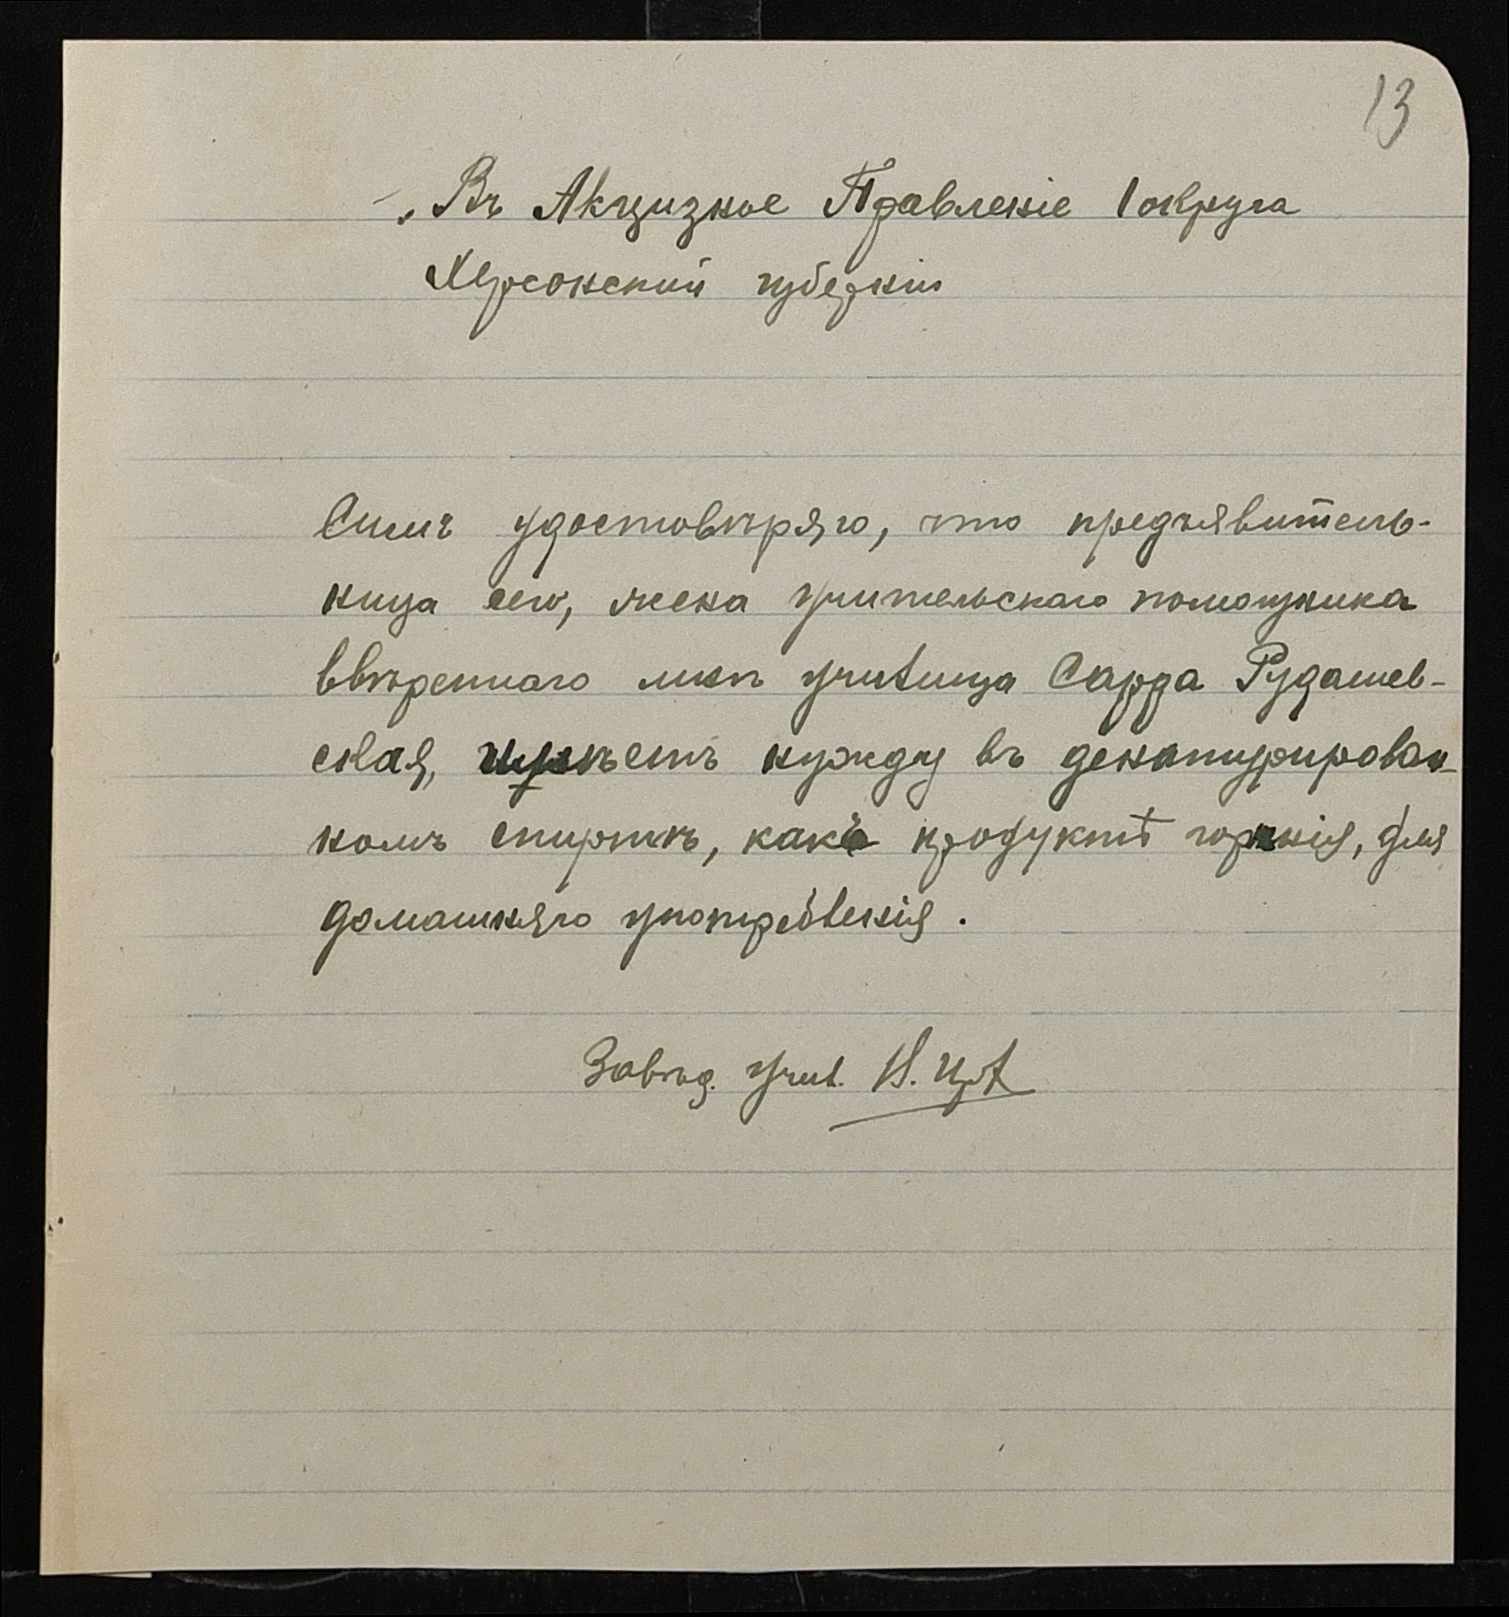 13
Въ Акцизное Правленіе 1 округа
Херсонской губерніи
Симъ удостовѣряю, что предъявитель-
ница сего, жена учительскаго помощника
ввѣреннаго мнѣ училища Сарра Рудашев-
ская, имѣетъ нужду въ денатурирован-
номъ спиртѣ, какъ продуктѣ горѣнія, для
домашняго употребленія.
Завѣд. учил.